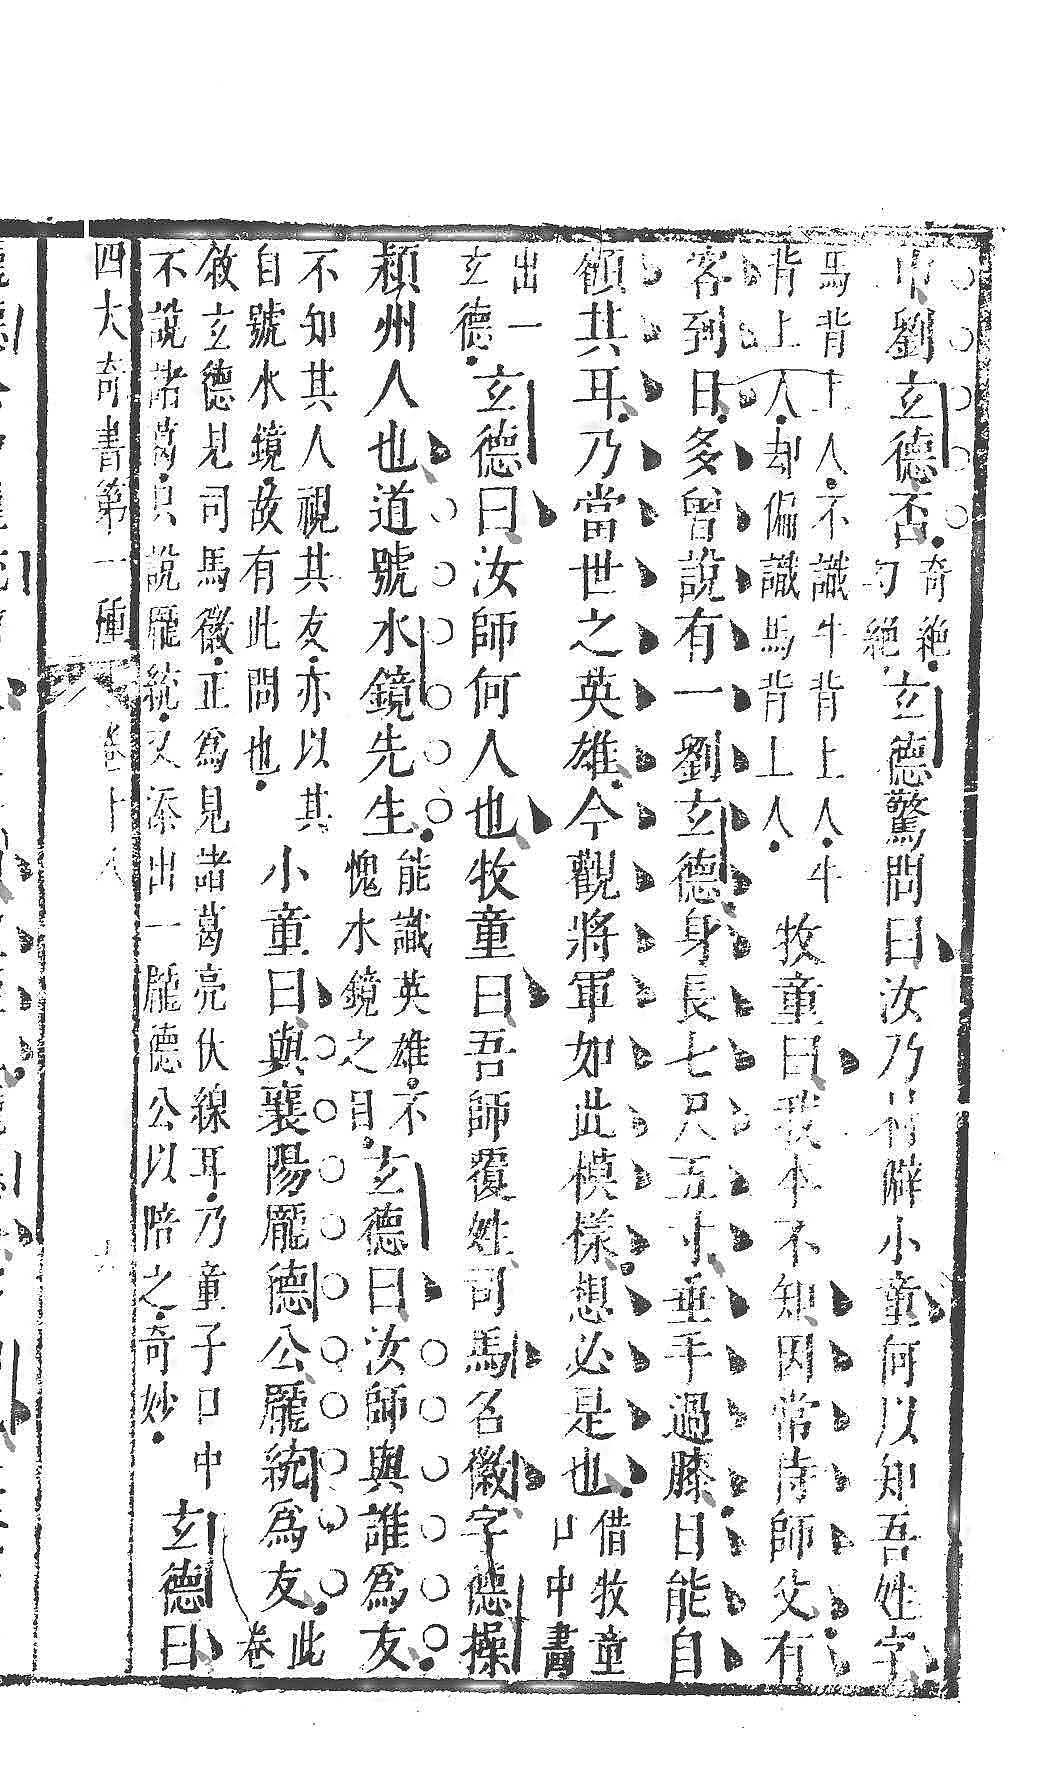 巾劉玄德否。奇絶。幻絶。玄德驚問曰汝乃村僻小童何以知吾姓字
馬背上人。不識牛背上人。牛背上人。却偏識馬背上人。牧童曰我本不知因常侍師父有
客到日。多曾說有一劉玄德身長七尺五寸垂手過膝。目能自
顧其耳。乃當世之英雄。今觀將軍如此模樣。想必是也。借牧童口中畫
出一玄德。玄德曰汝師何人也牧童曰吾師覆姓司馬名徽字德操
潁州人也道號水鏡先生。能識英雄。不愧水鏡之目。玄德曰汝師與誰爲友。
不知其人視其友。亦以其自號水鏡。故有此問也。小童曰與襄陽龐德公龐統爲友。此卷
敘玄德見司馬徽。正爲見諸葛亮伏線耳。乃童子口中不說諸葛。只說龐統。又添出一龐德公以陪之。奇妙。玄德曰
四大奇書第一種 卷十八